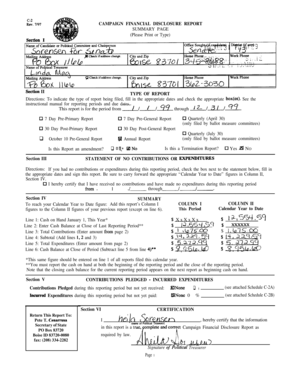 C-2
CAMPAIGN FINANCIAL DISCLOSURE REPORT
SUMMARY PAGE
(Please Print or Type)
Section I
Name of Candidate or Political Committee and Chairperson
Sorensen for Senate
Mailing Address
City and Zip
Home Phone
Work Phone
PO Box 1166
Boise 83701
Name of Political Treasurer
Linda
Mailing Address
City and Zip
Home Phone
Work Phone
PO Box 1166
Boise 83701
362-3030
Section II
TYPE OF REPORT
Directions: To indicate the type of report being filed, fill in the appropriate dates and check the appropriate box(es). See the
instruction manual for reporting periods and due dates.
This report is for the period from 1 / 1 / 99 through 12 / 31 / 99
7 Day Pre-Primary Report
7 Day Pre-General Report
Quarterly (April 30)
(only filed by ballot measure committees)
30 Day Post-Primary Report
30 Day Post-General Report
Quarterly (July 30)
(only filed by ballot measure committees)
October 10 Pre-General Report
Annual Report
Is this Report an amendment? Yes No
Is this a Termination Report? Yes No
Section III
STATEMENT OF NO CONTRIBUTIONS OR EXPENDITURES
Directions: If you had no contributions or expenditures during this reporting period, check the box next to the statement below, fill in the
appropriate dates and sign this report. Be sure to carry forward the appropriate "Calendar Year to Date" figures in Section
IV.
I hereby certify that I have received no contributions and have made no expenditures during this reporting period
from / / through / /
Section IV
SUMMARY
To reach your Calendar Year to Date figure: Add this report's Column I
figures to the Column II figures of your previous report (except on line 6).
COLUMN I
This Period
COLUMN II
Calendar Year to Date
Line 1: Cash on Hand January 1, This Year*
$ XXXX
$ 12,554.59
Line 2: Enter Cash Balance at Close of Last Reporting Period**
$ 12,554.59
$ XXXXX
Line 3: Total Contributions (Enter amount from page 2)
$ 1,675.00
$ 1,675.00
Line 4: Subtotal (Add lines 1, 2 and 3)
$ 14,229.59
$ 14,229.59
Line 5: Total Expenditures (Enter amount from page 2)
$ 5,272.99
$ 5,272.99
Line 6: Cash Balance at Close of Period (Subtract line 5 from line 4)**
$ 8,956.60
$ 8,956.60
*This same figure should be entered on line 1 of all reports filed this calendar year.
**You must report the cash on hand at both the beginning of the reporting period and the close of the reporting period.
Note that the closing cash balance for the current reporting period appears on the next report as beginning cash on hand.
Section V
CONTRIBUTIONS PLEDGED - INCURRED EXPENDITURES
Contributions Pledged during this reporting period but not yet received:
None
$
(see attached Schedule C-2A)
Incurred Expenditures during this reporting period but not yet paid:
None
$
(see attached Schedule C-2B)
Section VI
CERTIFICATION
Return This Report To:
Pete T. Cenarrusa
Secretary of State
PO Box 83720
Boise ID 83720-0080
fax: (208) 334-2282
I Sorensen, hereby certify that the information
Name of Political Treasurer
in this report is a true, complete and correct Campaign Financial Disclosure Report as
required by law.
Sheila Sorensen
Signature of Political Treasurer